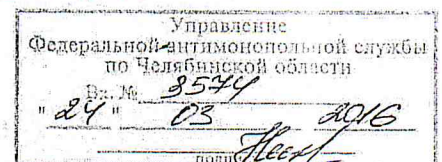 Управление
Федеральной антимонопольной службы
по Челябинской области
Вх. № 3574
"24" 03 2016